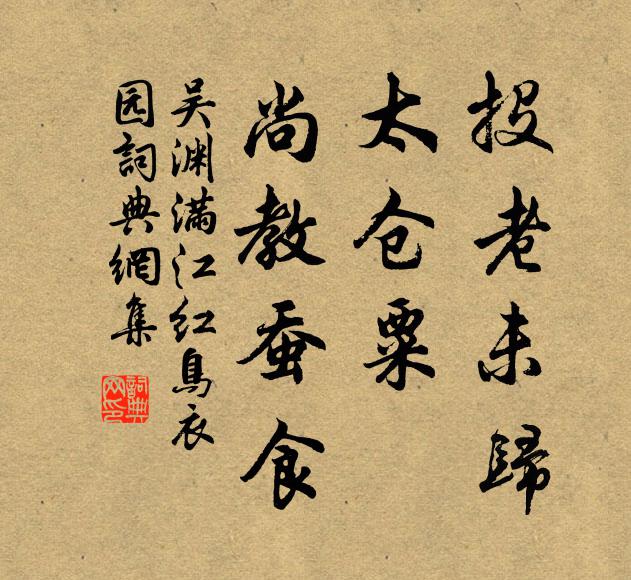 投老未歸
太仓粟
尚教蚕食
吴渊满江红乌衣
园詞典網集
詞典网印